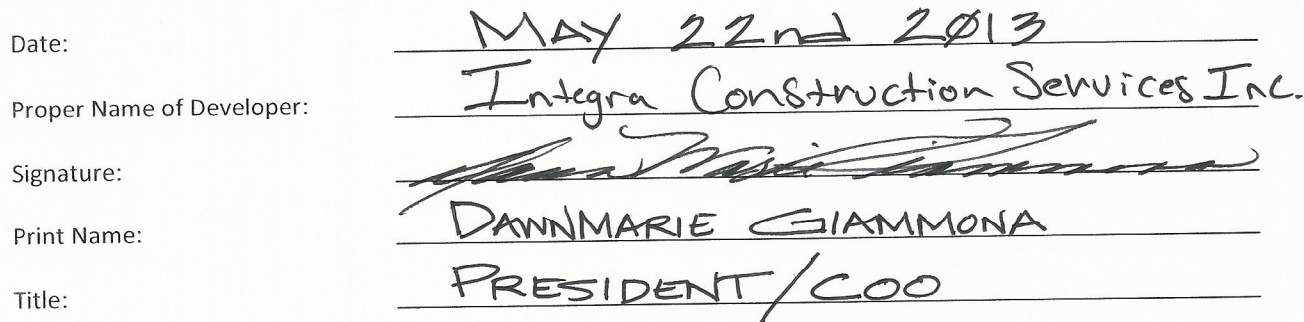 Date: MAY 22nd 2013
Proper Name of Developer: Integra Construction Services Inc.
Signature:
Print Name: DAWNMARIE GIAMMONA
Title: PRESIDENT/COO